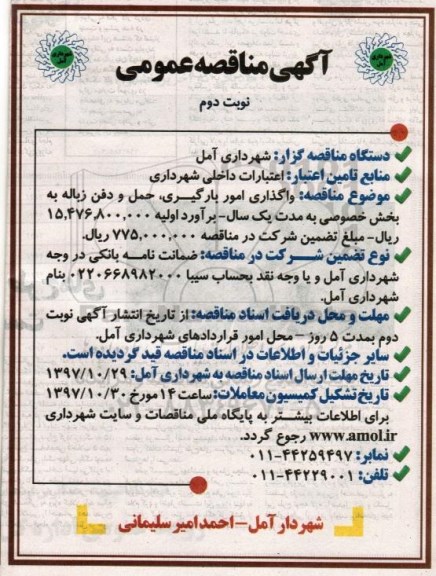 آگهی مناقصه عمومی
نوبت دوم
دستگاه مناقصه گزار: شهرداری آمل
منابع تامین اعتبار: اعتبارات داخلی شهرداری
موضوع مناقصه: واگذاری امور بارگیری، حمل و دفن زباله به
بخش خصوصی به مدت یک سال- برآورد اولیه ۱۵,۴۷۶,۸۰۰,۰۰۰
ریال- مبلغ تضمین شرکت در مناقصه ۷۷۵,۰۰۰,۰۰۰ ریال.
نوع تضمین شرکت در مناقصه: ضمانت نامه بانکی در وجه
شهرداری آمل و یا وجه نقد بحساب سیبا ۰۲۲۰۶۶۸۹۸۲۰۰۰ بنام
شهرداری آمل.
مهلت و محل دریافت اسناد مناقصه: از تاریخ انتشار آگهی نوبت
دوم بمدت ۵ روز – محل امور قراردادهای شهرداری آمل.
سایر جزئیات و اطلاعات در اسناد مناقصه قید گردیده است.
تاریخ مهلت ارسال اسناد مناقصه به شهرداری آمل: ۱۳۹۷/۱۰/۲۹
تاریخ تشکیل کمیسیون معاملات: ساعت ۱۴ مورخ ۱۳۹۷/۱۰/۳۰
برای اطلاعات بیشتر به پایگاه ملی مناقصات و سایت شهرداری
www.amol.ir رجوع گردد.
نمابر: ۴۴۲۵۹۴۹۷-۰۱۱
تلفن: ۴۴۲۲۹۰۰۱-۰۱۱
شهردار آمل – احمد امیر سلیمانی